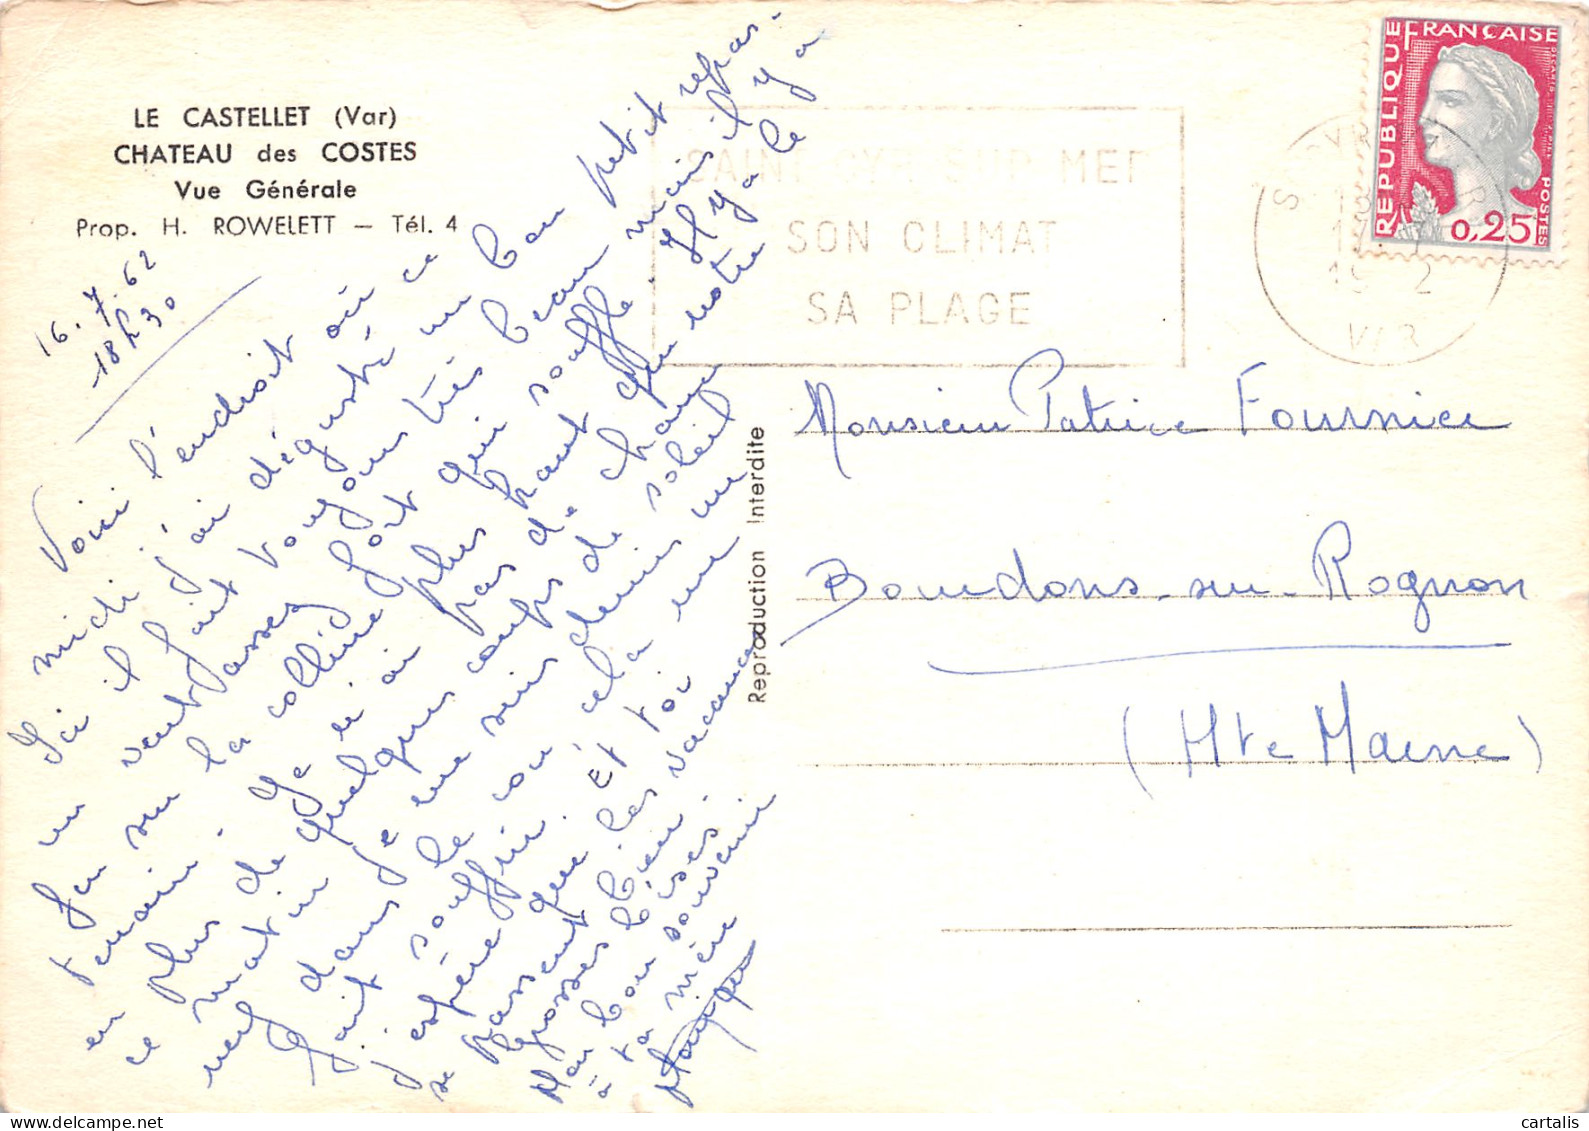 LE CASTELLET (Var)
CHATEAU des COSTES
Vue Générale
Prop. H. ROWELETT — Tél. 4
16.7.62
18h30
Voici l'endroit où ce
midi j'ai dégusté un bon petit repas.
Ici il fait toujours très beau mais il y a
un vent assez fort qui souffle. Il y a le
feu sur la colline plus haut que notre
terrain. Je n'ai pas de chance
en plus de quelques coups de soleil
ce matin je me suis démis un
nerf dans le cou cela me
fait souffrir. Et toi
j'espère que les vacances
se passent bien.
Grosses bises.
Mon bon souvenir
à ta mère
REPUBLIQUE FRANÇAISE
0,25
POSTES
SAINT CYR SUR MER
SON CLIMAT
SA PLAGE
VAR
Reproduction Interdite
Monsieur Patrice Fournier
Bourdons-sur-Rognon
(Hte Marne)
cartalis
www.delcampe.net